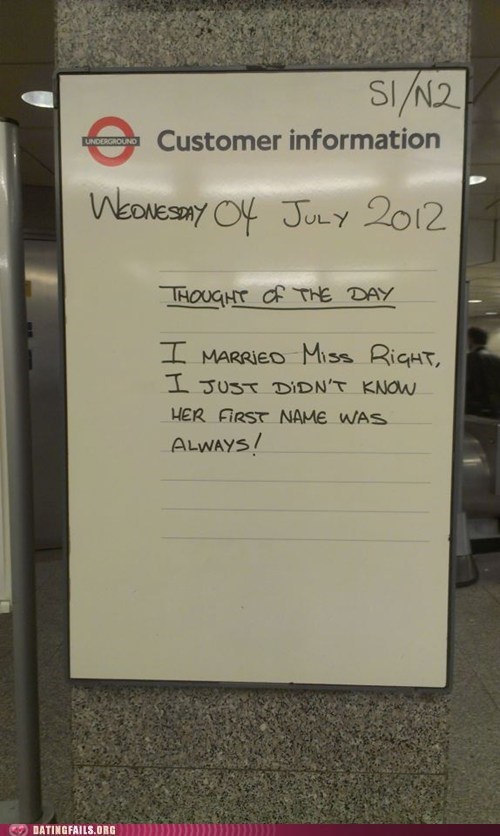 S1/N2
UNDERGROUND
Customer information
WEDNESDAY 04 JULY 2012
THOUGHT OF THE DAY
I MARRIED MISS RIGHT,
I JUST DIDN'T KNOW
HER FIRST NAME WAS
ALWAYS!
DATINGFAILS.ORG